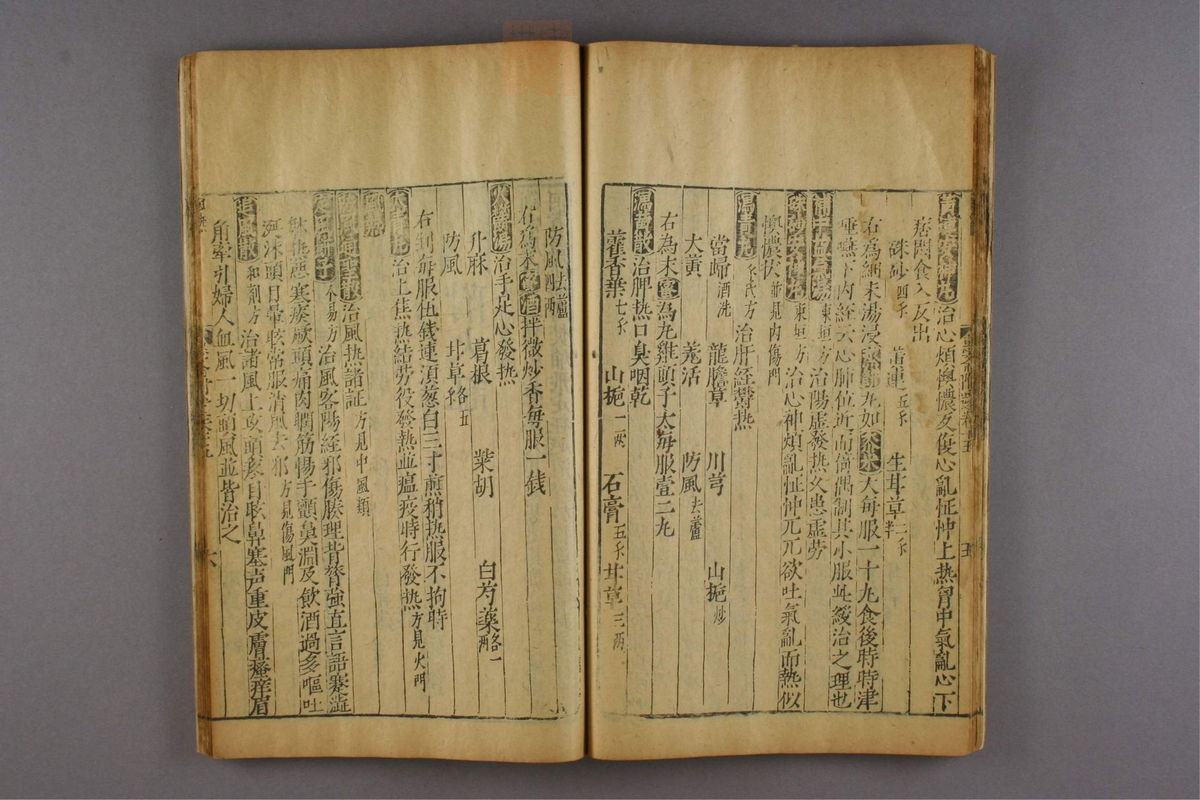 黄連安神丸治心煩懊憹反復心亂怔忡上热胷中氣亂心下
痞悶食入反出
硃砂四錢 黄連五錢 生甘草二錢半
右為細末湯浸蒸餅丸如黍米大每服一十丸食後時時津
唾嚥下内經云心肺位近而偶偶制其小服此緩治之理也
補中益氣湯東垣方治陽虚發热又患虚劳
硃砂安神丸東垣方治心神煩亂怔忡兀兀欲吐氣亂而熱似
懊憹状並見内傷門
瀉青丸錢氏方治肝經欝热
當歸酒洗 龍膽草 川芎 山梔炒
大黄 羌活 防風去蘆
右為末蜜為丸雞頭子大每服壹二丸
瀉黄散治脾热口臭咽乾
藿香葉七錢 山梔一兩 石膏五錢 甘草三兩
防風去蘆四兩
右為末蜜酒拌微炒香每服一錢
火欝湯治手足心發热
升麻 葛根 柴胡 白芍藥各一兩
防風 甘草各五
右剉每服伍錢連湏葱白三寸煎稍热服不拘時
治上焦热結劳役發热並瘟疫時行發热方見火門
治風热諸証方見中風類
不易方治風客陽經邪傷腠理背膂強直言語蹇澁
躰热惡寒痰厥頭痛肉瞤筋惕手顫鼻淵及飲酒過多嘔吐
涎沫頭目暈眩常服消風去邪方見傷風門
追風散和剤方治諸風上攻頭疼目眩鼻塞声重皮膚瘙痒眉
角牽引婦人血風一切頭風並皆治之